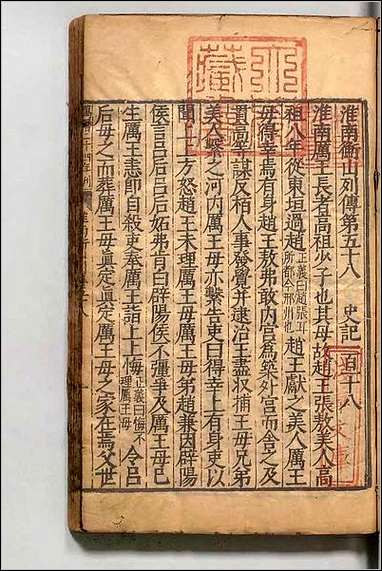 淮南衡山列傳第五十八　史記一百一十八
淮南厲王長者高祖少子也其母故趙王張敖美人高
祖八年從東垣過趙正義曰趙張耳所都今邢州也趙王獻之美人厲王
母得幸焉有身趙王敖弗敢內宮爲築外宮而舍之及
貫高等謀反栢人事發覺并逮治王盡收捕王母兄弟
美人繫之河內厲王母亦繫告吏曰得幸上有身吏以
聞上上方怒趙王未理厲王母厲王母弟趙兼因辟陽
侯言呂后呂后妬弗肯白辟陽侯不彊爭及厲王母已
生厲王恚即自殺吏奉厲王詣上上悔正義曰悔不理厲王母令呂
后母之而葬厲王母眞定眞定厲王母之家在焉父世